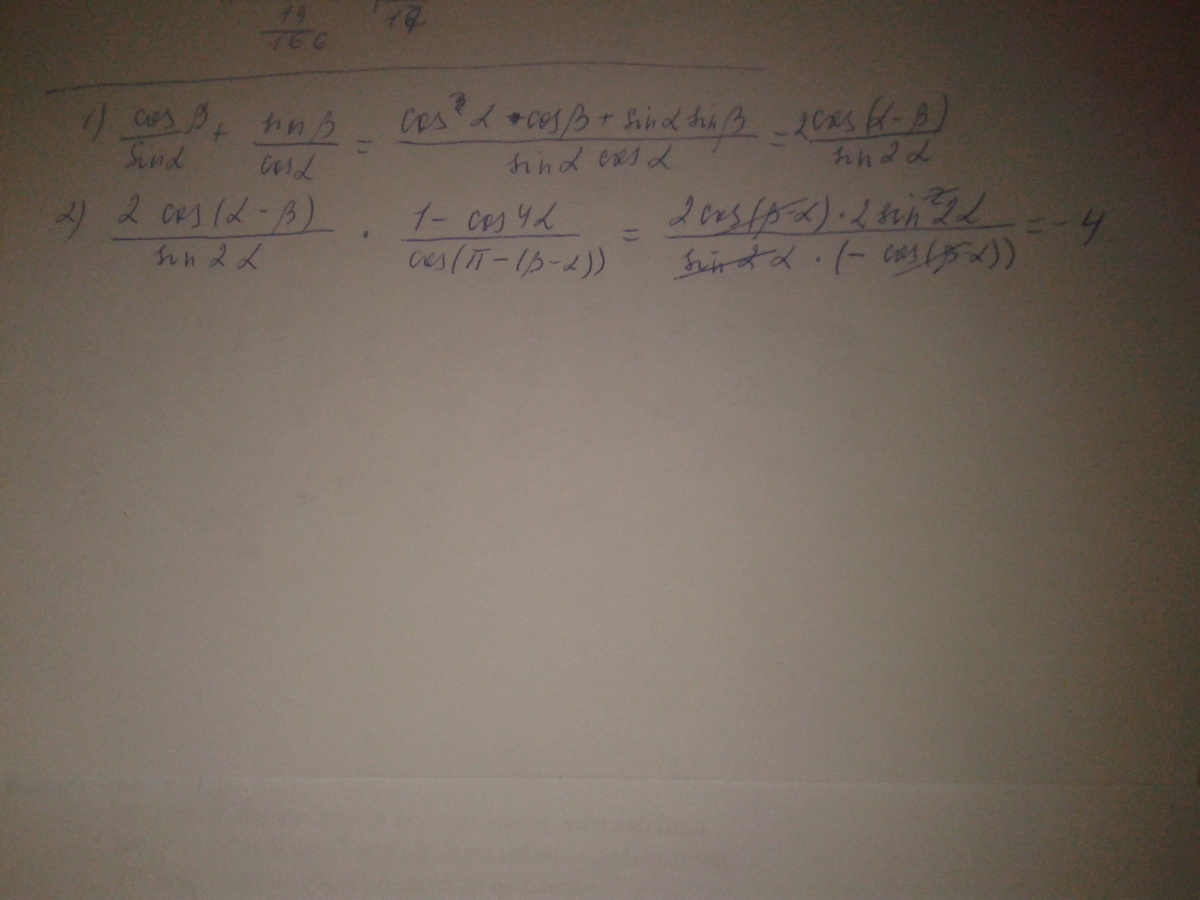 19/166 16
1) cosβ/sinα + sinβ/cosα = (cos α · cosβ + sinα sinβ)/(sinα cosα) = 2cos(α-β)/sin2α
2) 2 cos(α-β)/sin2α · (1 - cos4α)/cos(π-(β-α)) = (2cos(β-α) · 2 sin²2α)/(sin2α · (-cos(β-α))) = -4